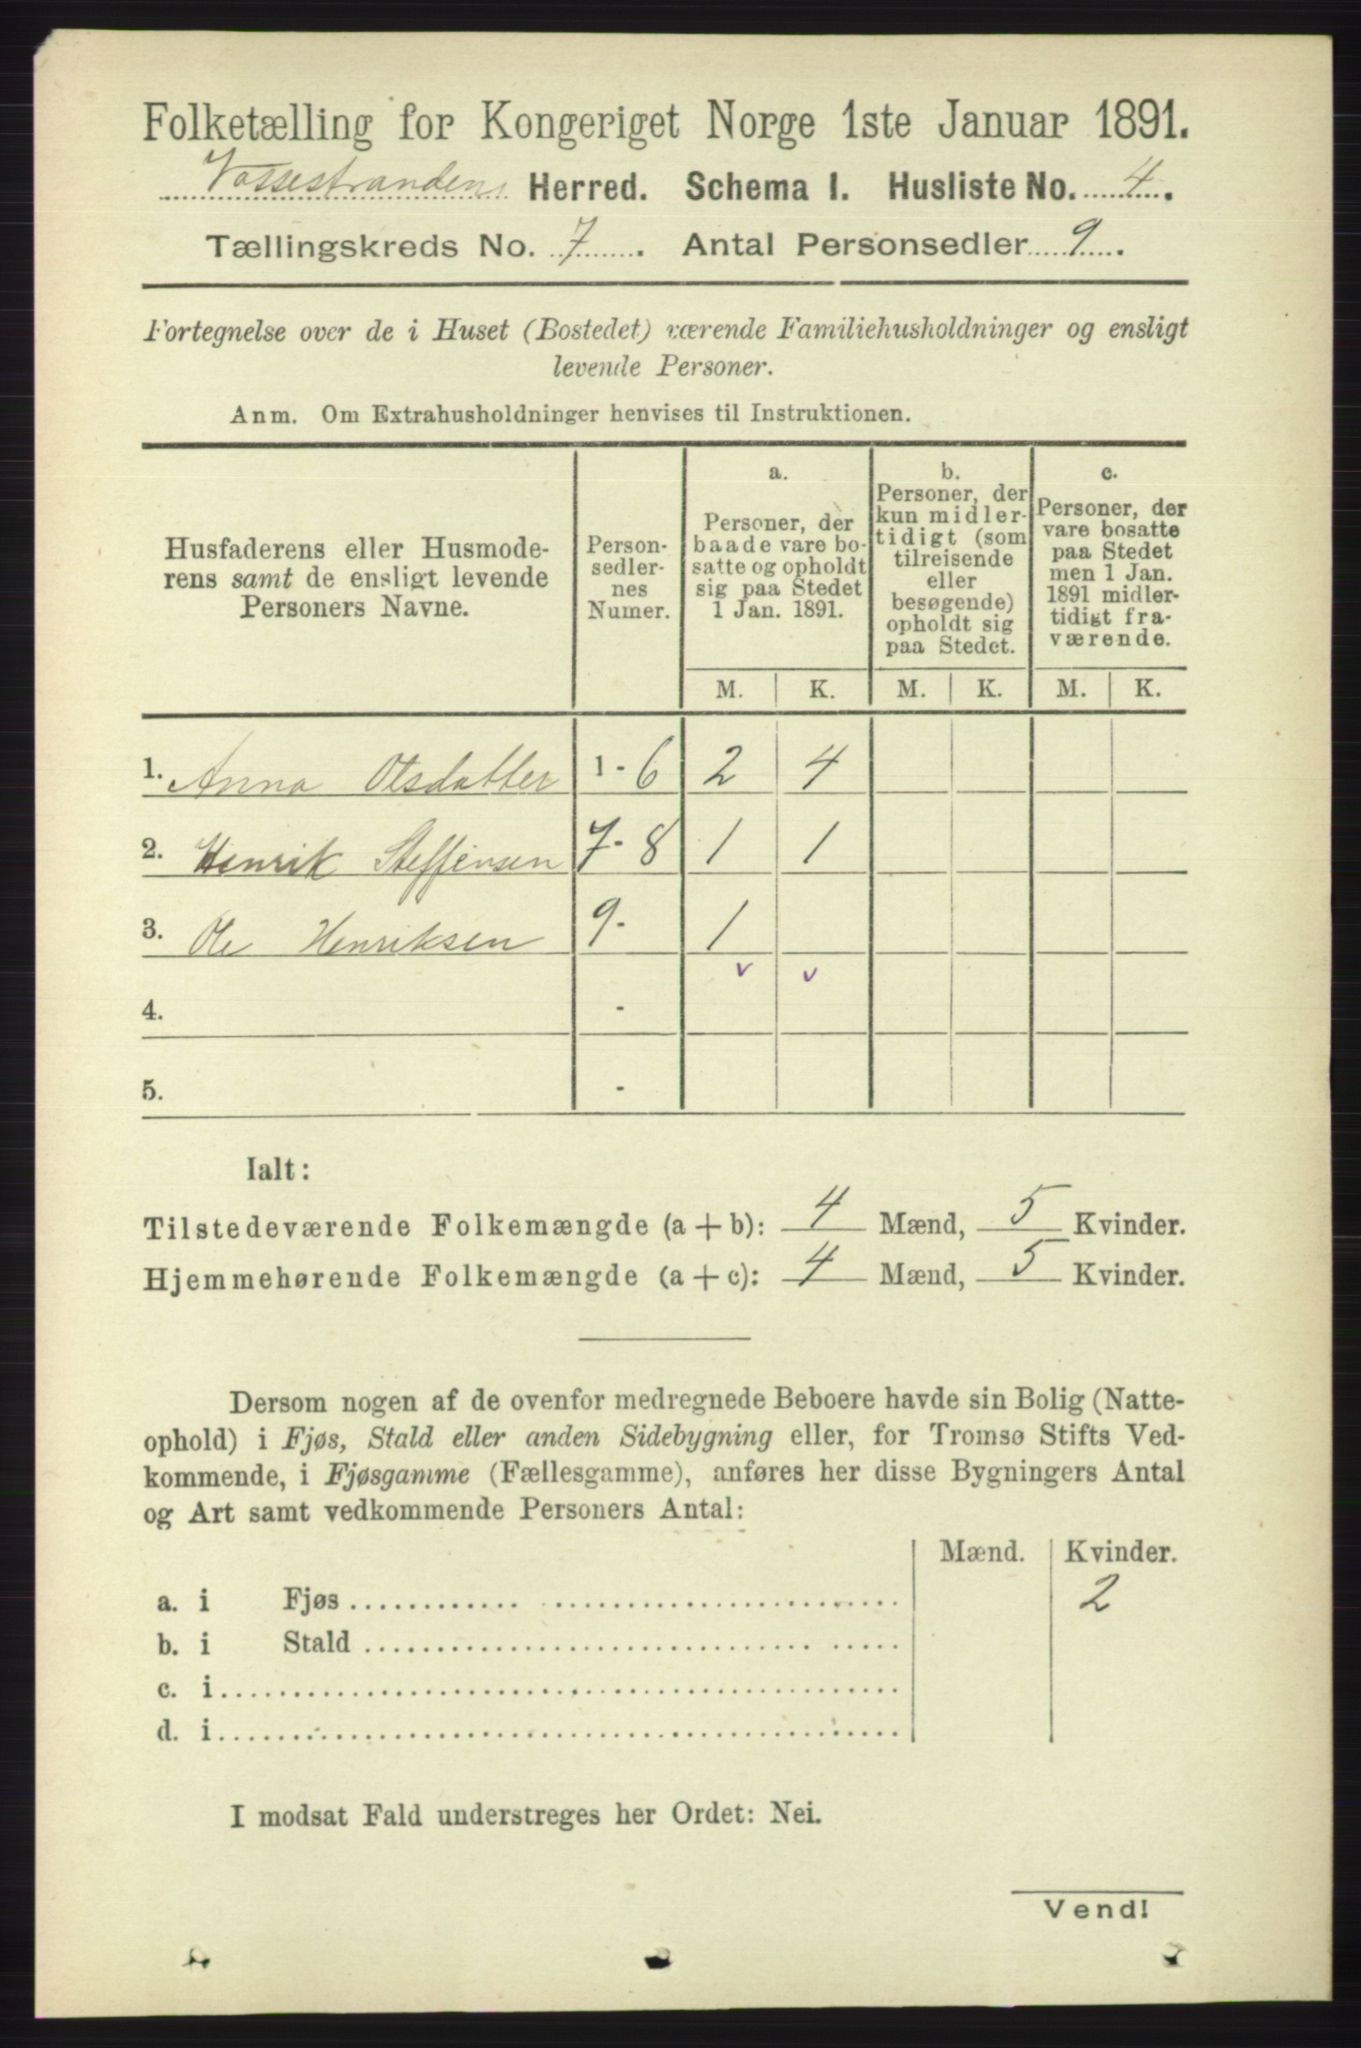 Folketælling for Kongeriget Norge 1ste Januar 1891.
Vossestrandens Herred. Schema I. Husliste No. 4.
Tællingskreds No. 7. Antal Personsedler 9.
Fortegnelse over de i Huset (Bostedet) værende Familiehusholdninger og ensligt
levende Personer.
Anm. Om Extrahusholdninger henvises til Instruktionen.
Husfaderens eller Husmode-
rens samt de ensligt levende
Personers Navne.
Person-
sedler-
nes
Numer.
a.
Personer, der
baade vare bo-
satte og opholdt
sig paa Stedet
1 Jan. 1891.
b.
Personer, der
kun midler-
tidigt (som
tilreisende
eller
besøgende)
opholdt sig
paa Stedet.
c.
Personer, der
vare bosatte
paa Stedet
men 1 Jan.
1891 midler-
tidigt fra-
værende.
M. K. M. K. M. K.
1. Anna Olsdatter 1-6 2 4
2. Henrik Steffensen 7-8 1 1
3. Ole Henriksen 9- 1
v v
4. -
5. -
Ialt:
Tilstedeværende Folkemængde (a + b): 4 Mænd, 5 Kvinder.
Hjemmehørende Folkemængde (a + c): 4 Mænd, 5 Kvinder.
Dersom nogen af de ovenfor medregnede Beboere havde sin Bolig (Natte-
ophold) i Fjøs, Stald eller anden Sidebygning eller, for Tromsø Stifts Ved-
kommende, i Fjøsgamme (Fællesgamme), anføres her disse Bygningers Antal
og Art samt vedkommende Personers Antal:
Mænd. Kvinder.
a. i Fjøs 2
b. i Stald
c. i
d. i
I modsat Fald understreges her Ordet: Nei.
Vend!